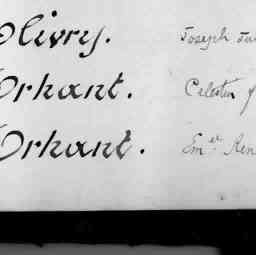 Olivry. Joseph
Orhant. Celestin
Orhant. Em.el Ren